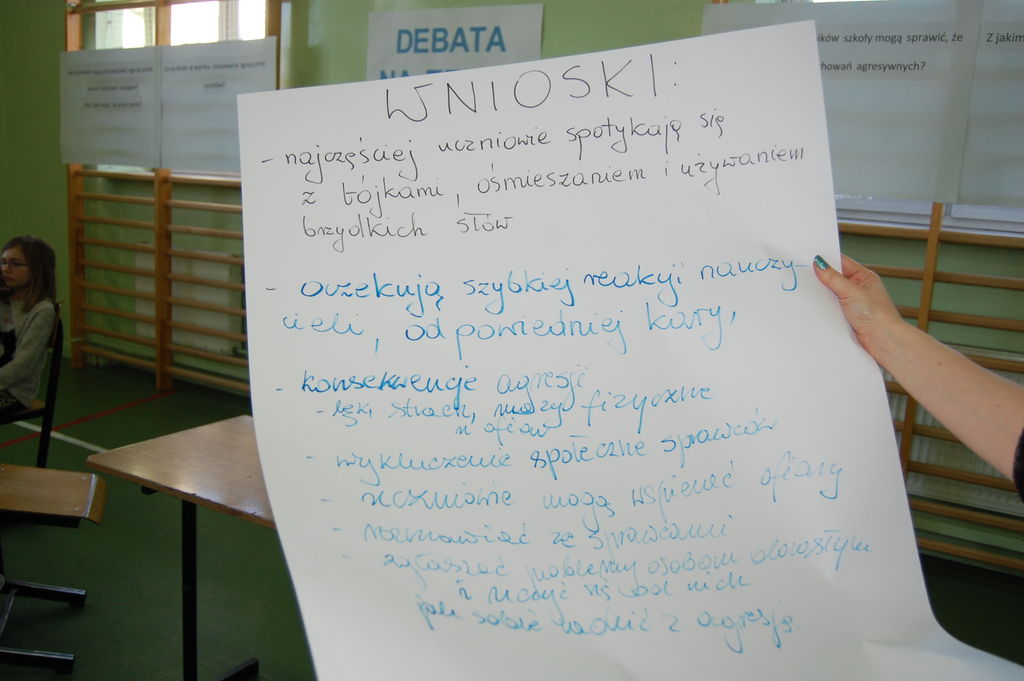 DEBATA
ników szkoły mogą sprawić, że
howań agresywnych?
Z jakim
WNIOSKI:
- najczęściej uczniowie spotykają się
z bójkami, ośmieszaniem i używaniem
brzydkich słów
- oczekują szybkiej reakcji nauczy-
cieli, odpowiedniej kary,
- konsekwencje agresji
- lęk, strach, urazy fizyczne
u ofiar
- wykluczenie społeczne sprawców
- uczniowie mogą wspierać ofiary
- rozmawiać ze sprawcami
- zgłaszać problemy osobom dorosłym
i uczyć się od nich
jak sobie radzić z agresją.